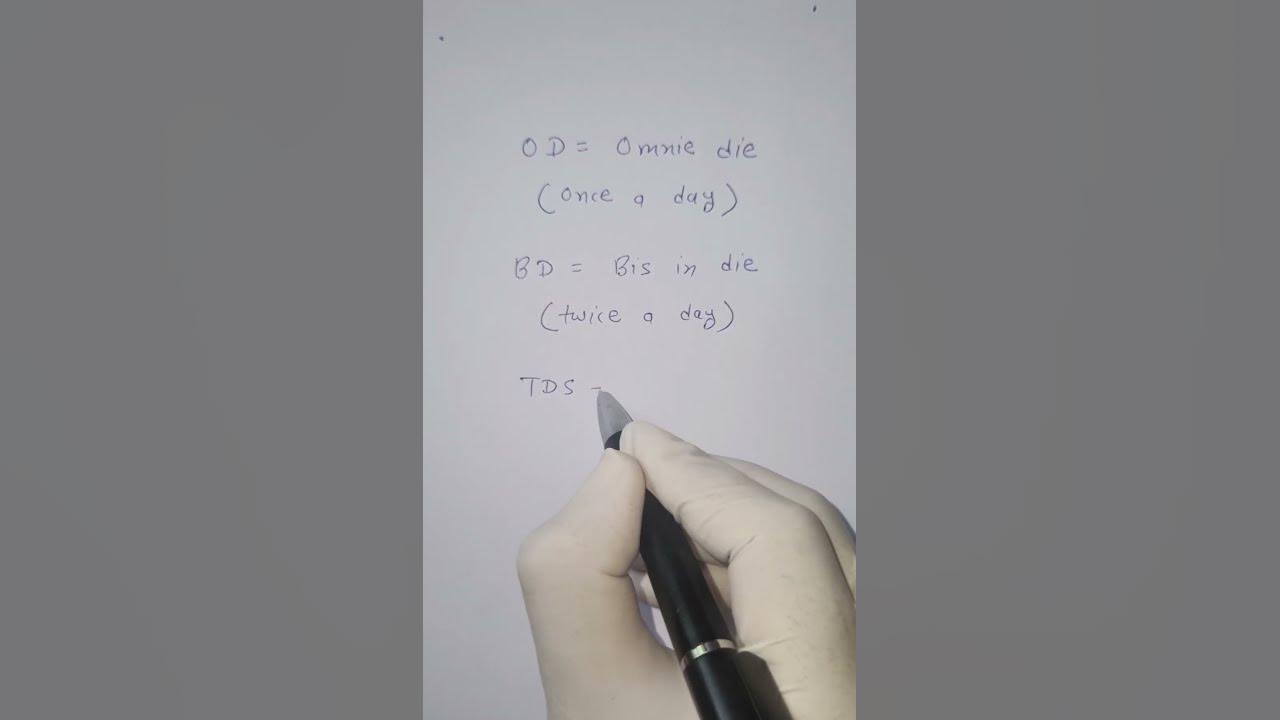 OD = Omnie die
(once a day)
BD = Bis in die
(twice a day)
TDS -